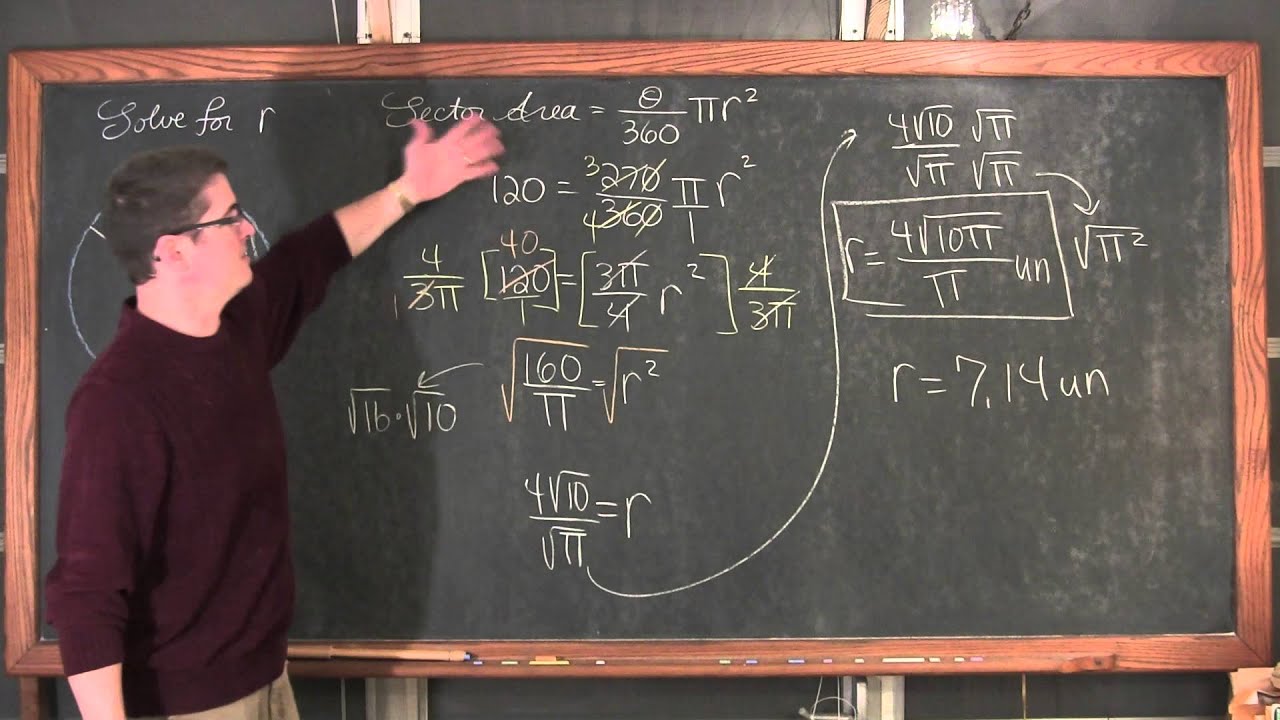 Solve for r
Sector Area = θ/360 πr²
120 = 3 270/4 360 π/1 r²
4/1 3π [40 120/1] = [3π/4 r²] 4/3π
√160/π = √r²
√16 · √10
4√10/√π = r
4√10/√π √π/√π
r = 4√10π/π un
√π²
r = 7.14 un